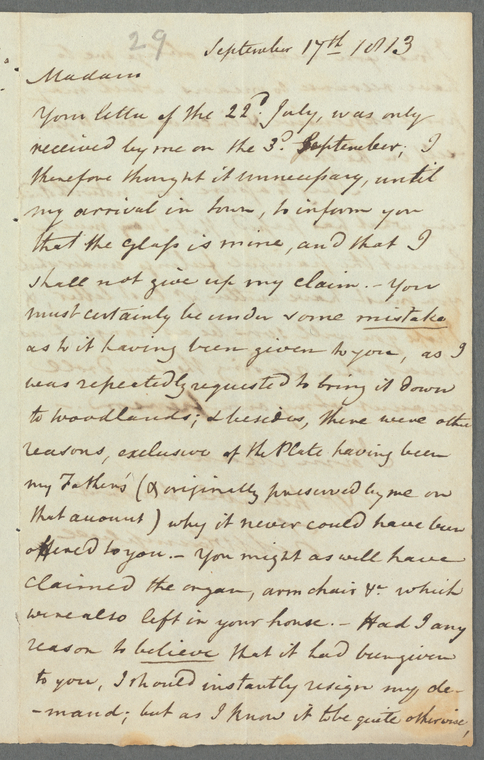 29
September 17th 1813
Madam
Your letter of the 22d. July, was only
received by me on the 3d. September; I
therefore thought it unnecessary, until
my arrival in town, to inform you
that the Glass is mine, and that I
shall not give up my claim. - You
must certainly be under some mistake
as to it having been given to you, as I
was repeatedly requested to bring it down
to Woodlands; & besides, there were other
reasons, exclusive of the Plate having been
my Father's (& originally preserved by me on
that account) why it never could have been
offered to you. - You might as well have
claimed the organ, arm chair &c. which
were also left in your house. - Had I any
reason to believe that it had been given
to you, I should instantly resign my de-
-mand; but as I know it to be quite otherwise,